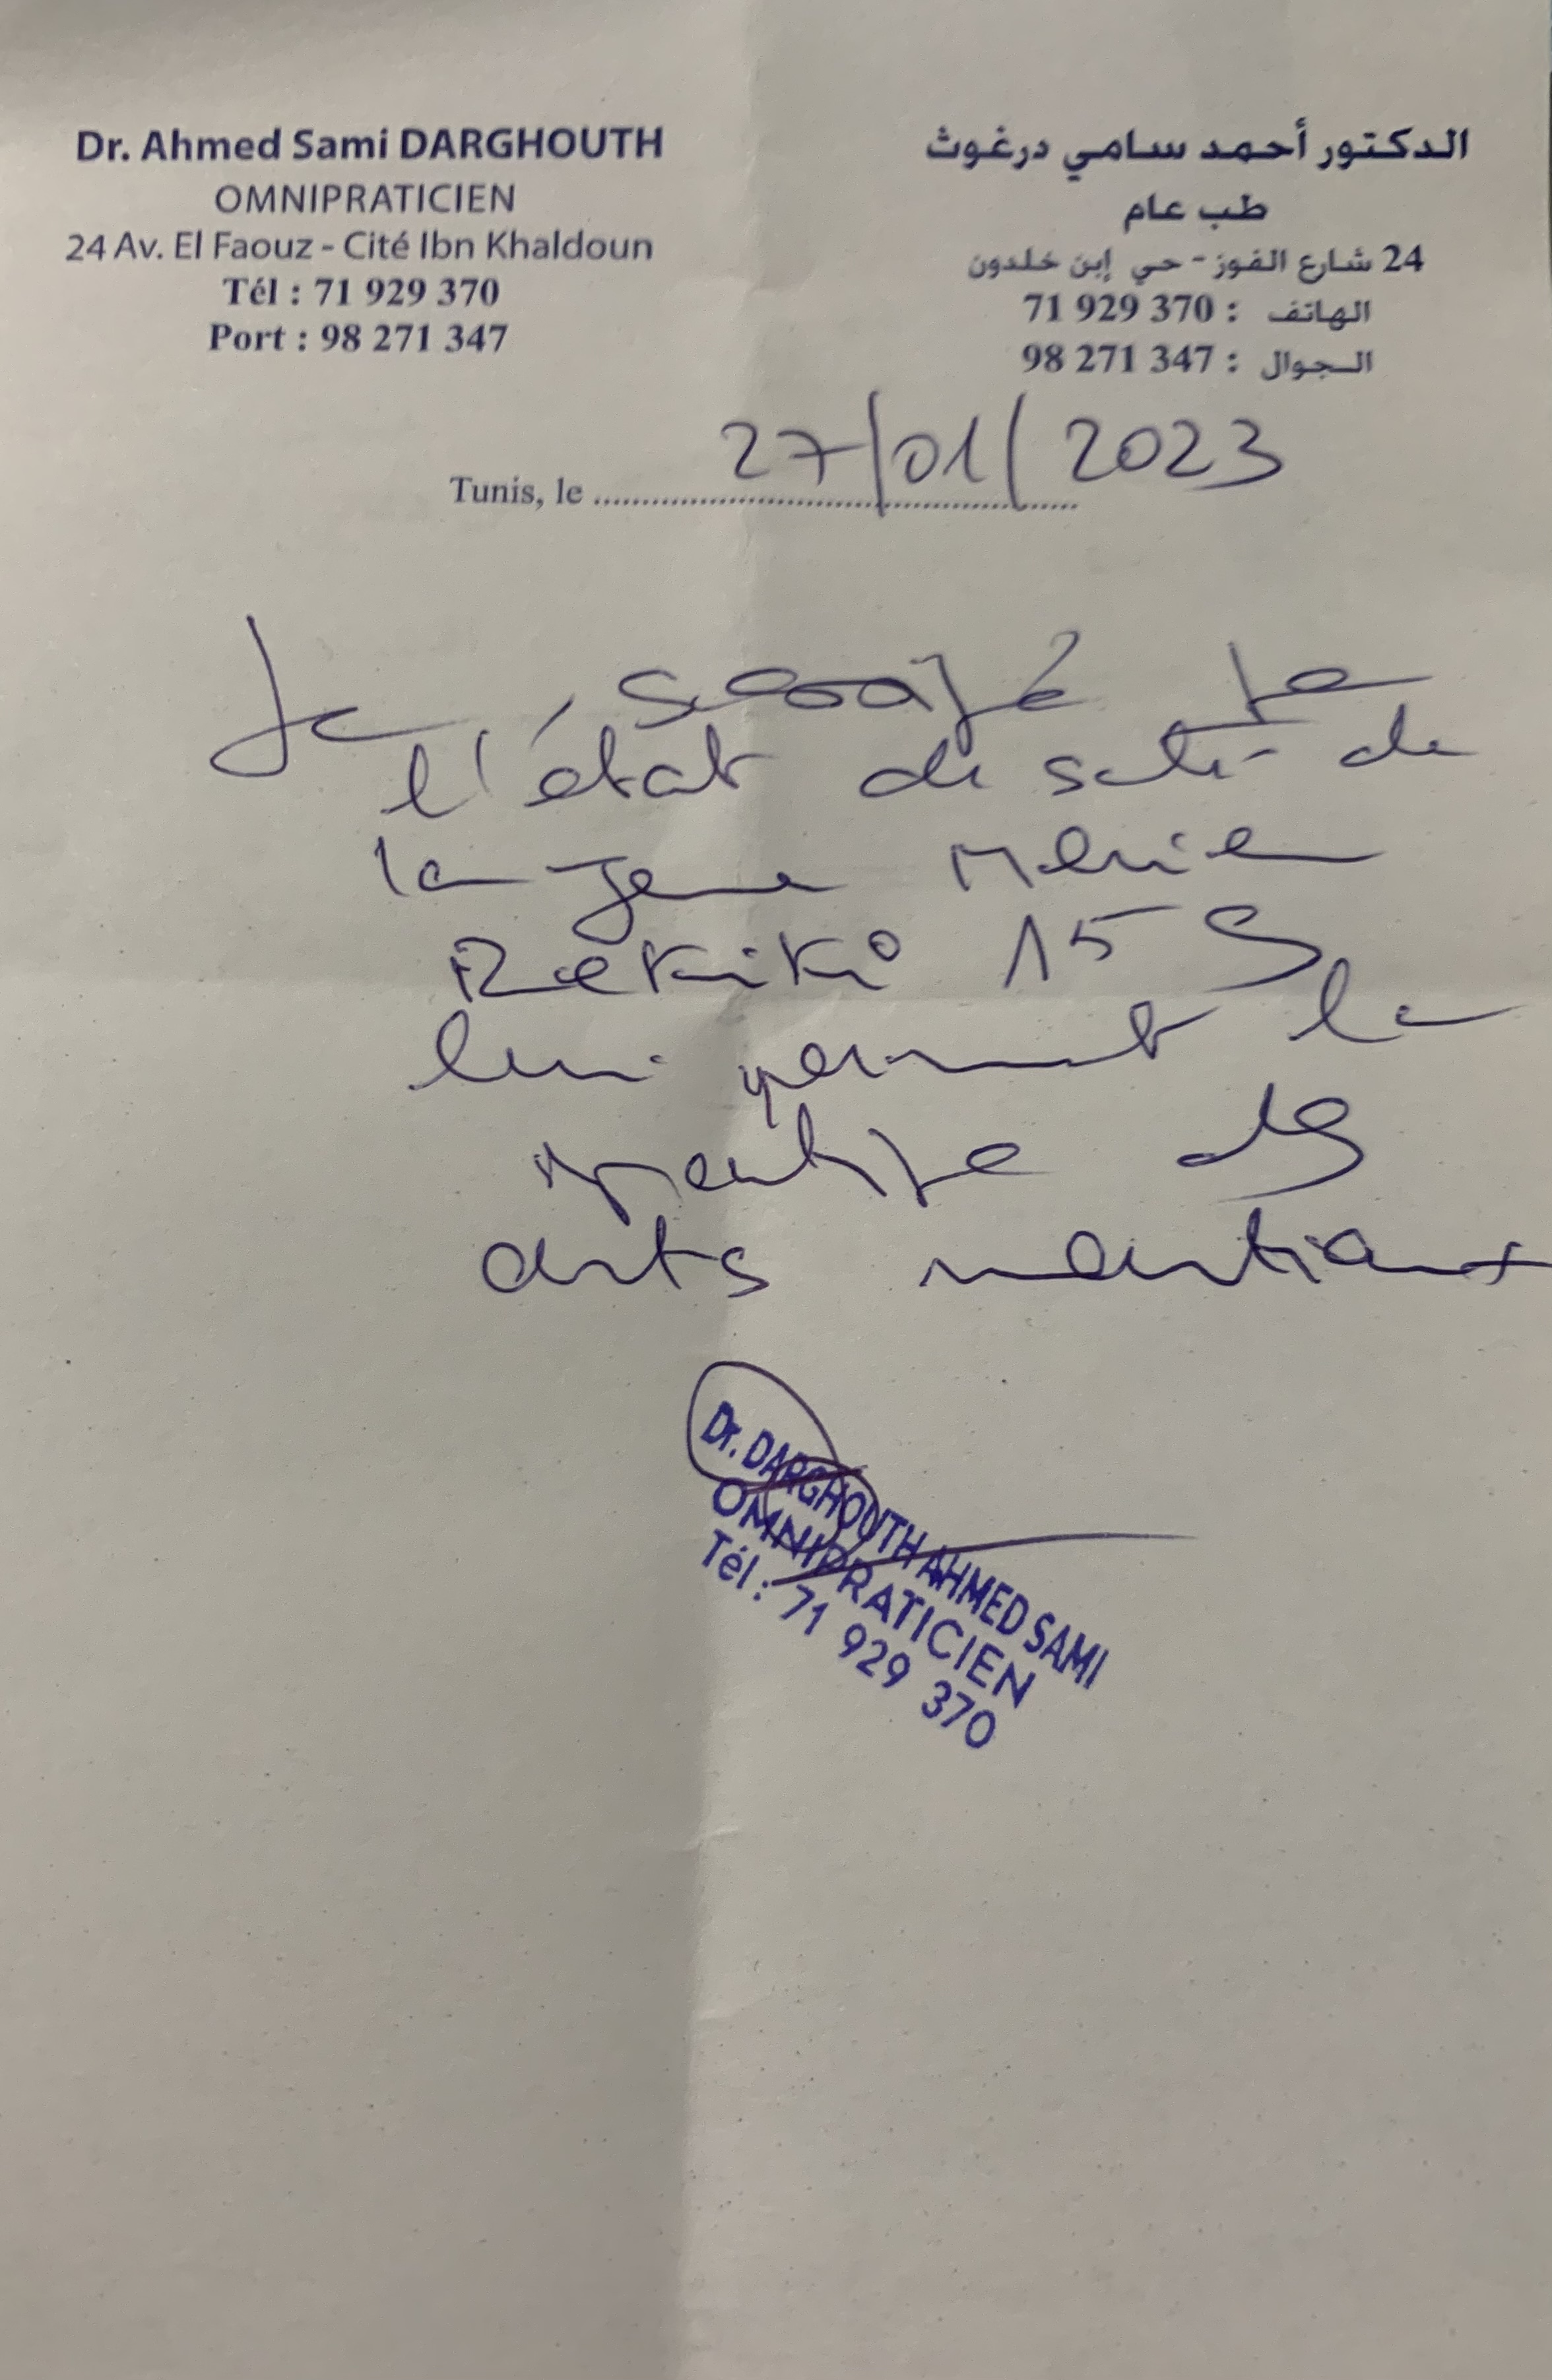 Dr. Ahmed Sami DARGHOUTH
OMNIPRATICIEN
24 Av. El Faouz - Cité Ibn Khaldoun
Tél : 71 929 370
Port : 98 271 347
الدكتور أحمد سامي درغوث
طب عام
24 شارع الفوز - حي إبن خلدون
الهاتف : 71 929 370
الجوال : 98 271 347
Tunis, le 27/01/2023
Je
l'état de santé de
la jeune
Rekiki 15
lui permet la
pratique des
arts martiaux
Dr. DARGHOUTH AHMED SAMI
OMNIPRATICIEN
Tél : 71 929 370